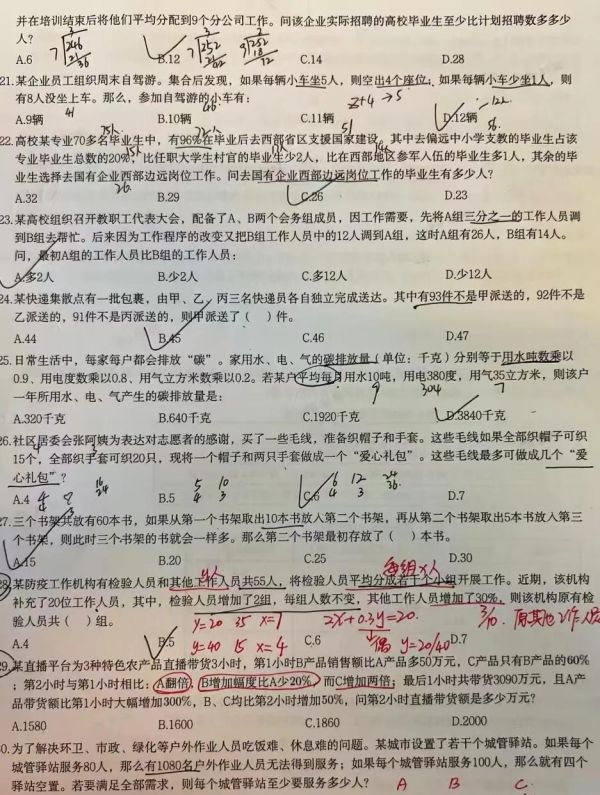 并在培训结束后将他们平均分配到9个分公司工作。问该企业实际招聘的高校毕业生至少比计划招聘数多多少
人？
A.6 B.12 C.14 D.28
21.某企业员工组织周末自驾游。集合后发现，如果每辆小车坐5人，则空出4个座位；如果每辆小车少坐1人，则
有8人没坐上车。那么，参加自驾游的小车有：
A.9辆 B.10辆 C.11辆 D.12辆
22.高校某专业70多名毕业生中，有96%在毕业后去西部省区支援国家建设。其中去偏远中小学支教的毕业生占该
专业毕业生总数的20%，比任职大学生村官的毕业生少2人，比在西部地区参军人伍的毕业生多1人，其余的毕
业生选择去国有企业西部边远岗位工作。问去国有企业西部边远岗位工作的毕业生有多少人？
A.32 B.29 C.26 D.23
23.某高校组织召开教职工代表大会，配备了A、B两个会务组成员，因工作需要，先将A组三分之一的工作人员调
到B组去帮忙。后来因为工作程序的改变又把B组工作人员中的12人调到A组，这时A组有26人，B组有14人。
问，最初A组的工作人员比B组的工作人员：
A.多2人 B.少2人 C.多12人 D.少12人
24.某快递集散点有一批包裹，由甲、乙，丙三名快递员各自独立完成送达。其中有93件不是甲派送的，92件不是
乙派送的，91件不是丙派送的，则甲派送了（ ）件。
A.44 B.45 C.46 D.47
25.日常生活中，每家每户都会排放“碳”。家用水、电、气的碳排放量（单位：千克）分别等于用水吨数乘以
0.9、用电度数乘以0.8、用气立方米数乘以0.2。若某户平均每月用水10吨，用电380度，用气35立方米，则该户
一年所用水、电、气产生的碳排放量是：
9 304 7
A.320千克 B.640千克 C.1920千克 D.3840千克
26.社区居委会张阿姨为表达对志愿者的感谢，买了一些毛线，准备织帽子和手套。这些毛线如果全部织帽子可织
15个，全部织手套可织20只，现将一个帽子和两只手套做成一个“爱心礼包”。这些毛线最多可做成几个“爱
心礼包”？
A.4 B.5 C.6 D.7
27.三个书架共放有60本书，如果从第一个书架取出10本书放入第二个书架，再从第二个书架取出5本书放入第三
个书架，则此时三个书架的书就会一样多。那么第二个书架最初存放了（ ）本书。
A.15 B.20 C.25 D.30
y人 每组x人
28.某防疫工作机构有检验人员和其他工作人员共55人，将检验人员平均分成若干个小组开展工作。近期，该机构
补充了20位工作人员，其中，检验人员增加了2组，每组人数不变，其他工作人员增加了30%，则该机构原有检
验人员共（ ）组。
y=20 35 x=7 2x+0.3y=20.
A.4 B.5 C.6 D.7
y=40 15 x=4 偶 y=20/40
29.某直播平台为3种特色农产品直播带货3小时，第1小时B产品销售额比A产品多50万元，C产品只有B产品的60%
；第2小时与第1小时相比：A翻倍，B增加幅度比A少20%，而C增加两倍；最后1小时共带货3090万元，且A产
品带货额比第1小时大幅增加300%，B、C均比第2小时增加50%，问第2小时直播带货额是多少万元？
A.1580 B.1600 C.1860 D.2000
30.为了解决环卫、市政、绿化等户外作业人员吃饭难、休息难的问题。某城市设置了若干个城管驿站。如果每个
城管驿站服务80人，那么有1080名户外作业人员无法得到服务；如果每个城管驿站服务100人，那么就有四个
驿站空置。若要满足全部需求，则每个城管驿站至少要服务多少人？ A B C